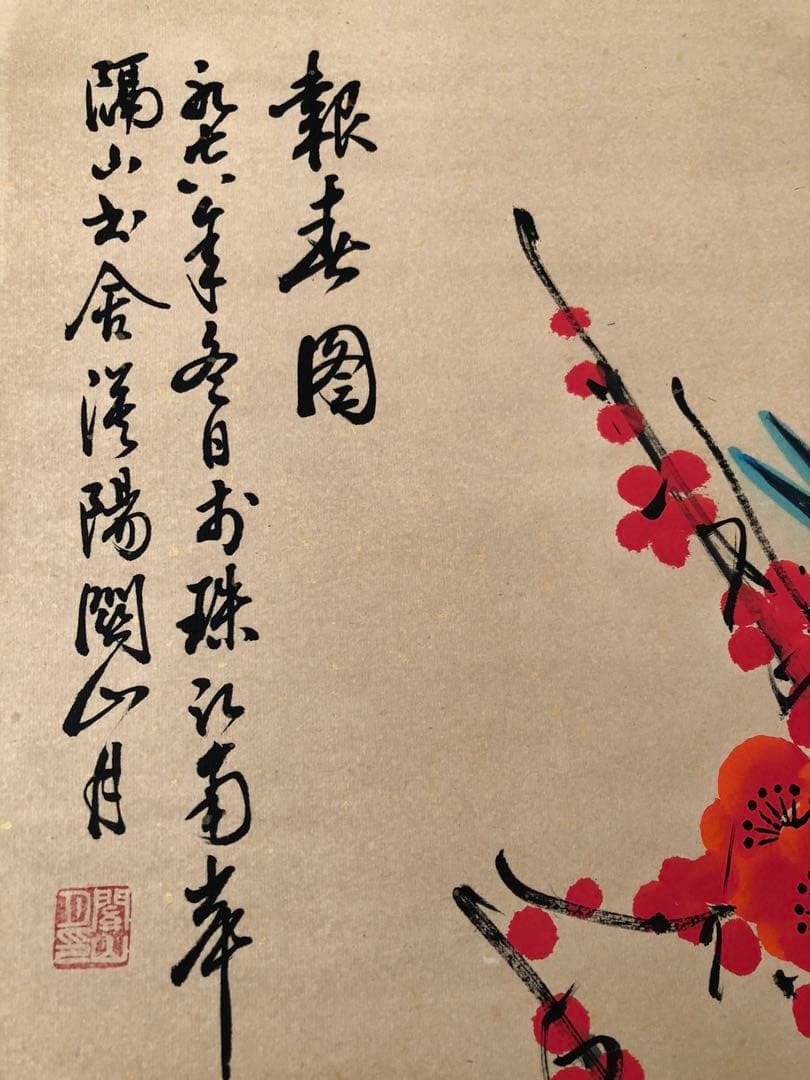 報春图
一九七八年冬日於珠江南岸
隔山书舍漠陽關山月
關山月印